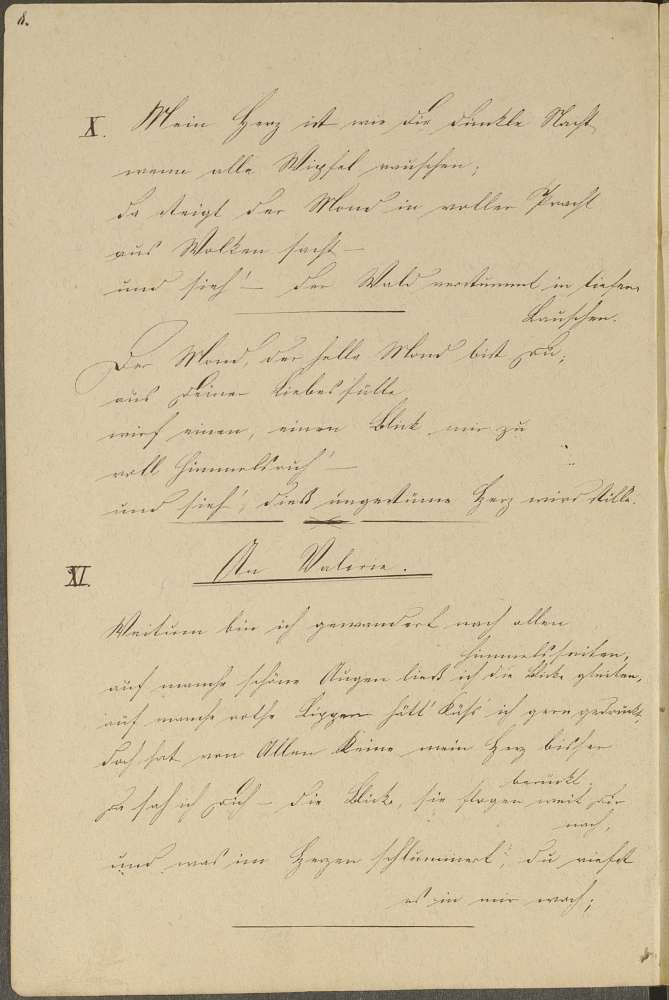 8.
X. Mein Herz ist wie die dunkle Nacht
wenn alle Wipfel rauschen;
da steigt der Mond in voller Pracht
aus Wolken sacht –
und sieh'! – der Wald verstummt in tiefem
Lauschen.
Der Mond, der helle Mond bist Du;
aus Deiner Liebesfülle
wirf einen, einen Blick mir zu
voll Himmelsruh'! –
und sieh', dieß ungestüme Herz wird stille.
XI. An Valerie.
Weitum bin ich gewandert nach allen
Himmelsseiten,
auf manche schöne Augen ließ ich die Blicke gleiten,
auf manche rothe Lippen hätt' Küss' ich gern gedrückt,
doch hat von Allen Keine mein Herz bisher
berückt.
Da sah ich Dich – die Blicke, sie flogen weit Dir
nach,
und was im Herzen schlummert', du riefst
es in mir wach;